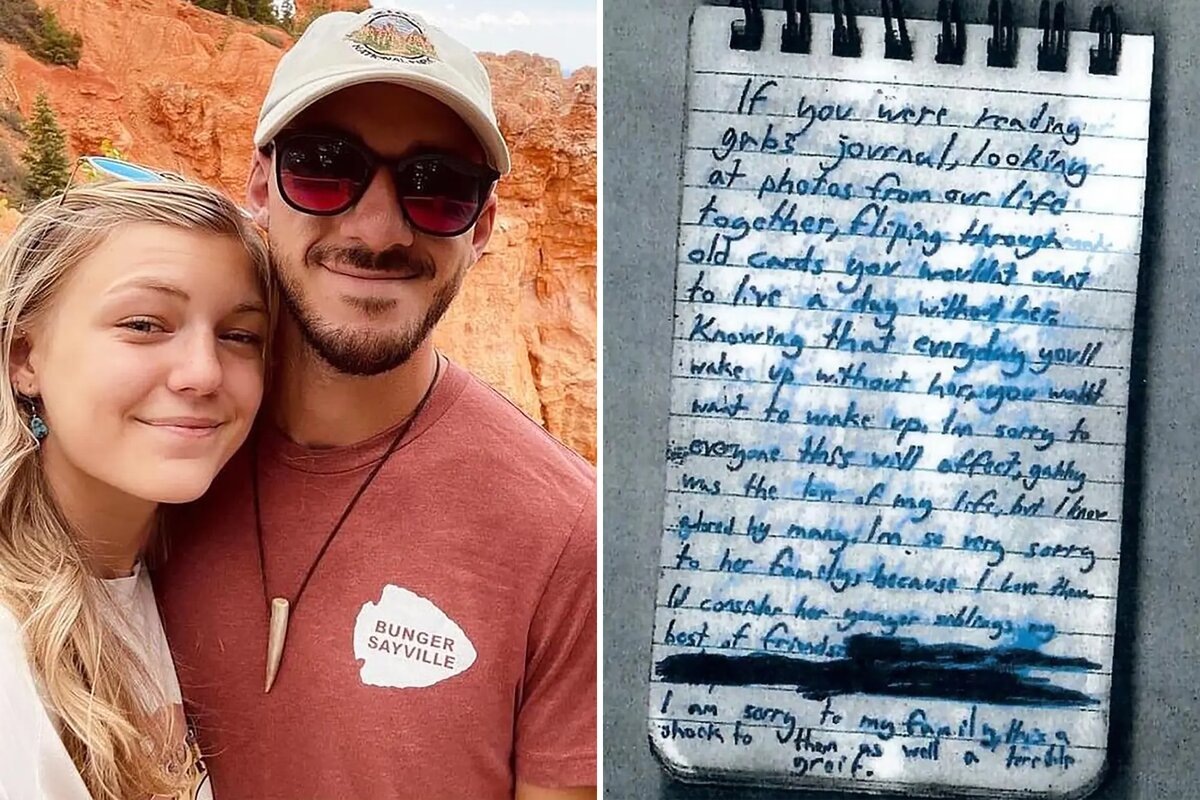 BUNGER
SAYVILLE
If you were reading
gabs' journal, looking
at photos from our life
together, fliping through
old cards you wouldnt want
to live a day without her.
Knowing that everyday you'll
wake up without her, you wouldnt
want to wake up. I'm sorry to
everyone this will affect, gabby
was the love of my life, but I know
adored by many. I'm so very sorry
to her family, because I love them.
I'd consider her younger siblings my
best of friends
I am sorry to my family, this is a
shock to them as well a terrible
greif.